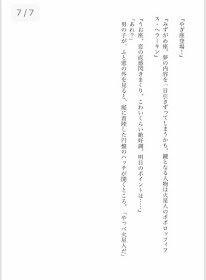 7/7
「やぎ座登場…」
「みずがめ座。夢の内容を一日引きずってしまうかも。鍵となる人物は火星人のポポロッフィフ
ス・ヘラーキン」
「うお座。恋の直感閃きまくり。こわいくらい絶好調。明日のポイントは……」
「あれ？」
男の子が、ふと窓の外を見ると、庭に着陸した円盤のハッチが開くところ。「やっべ火星人だ」